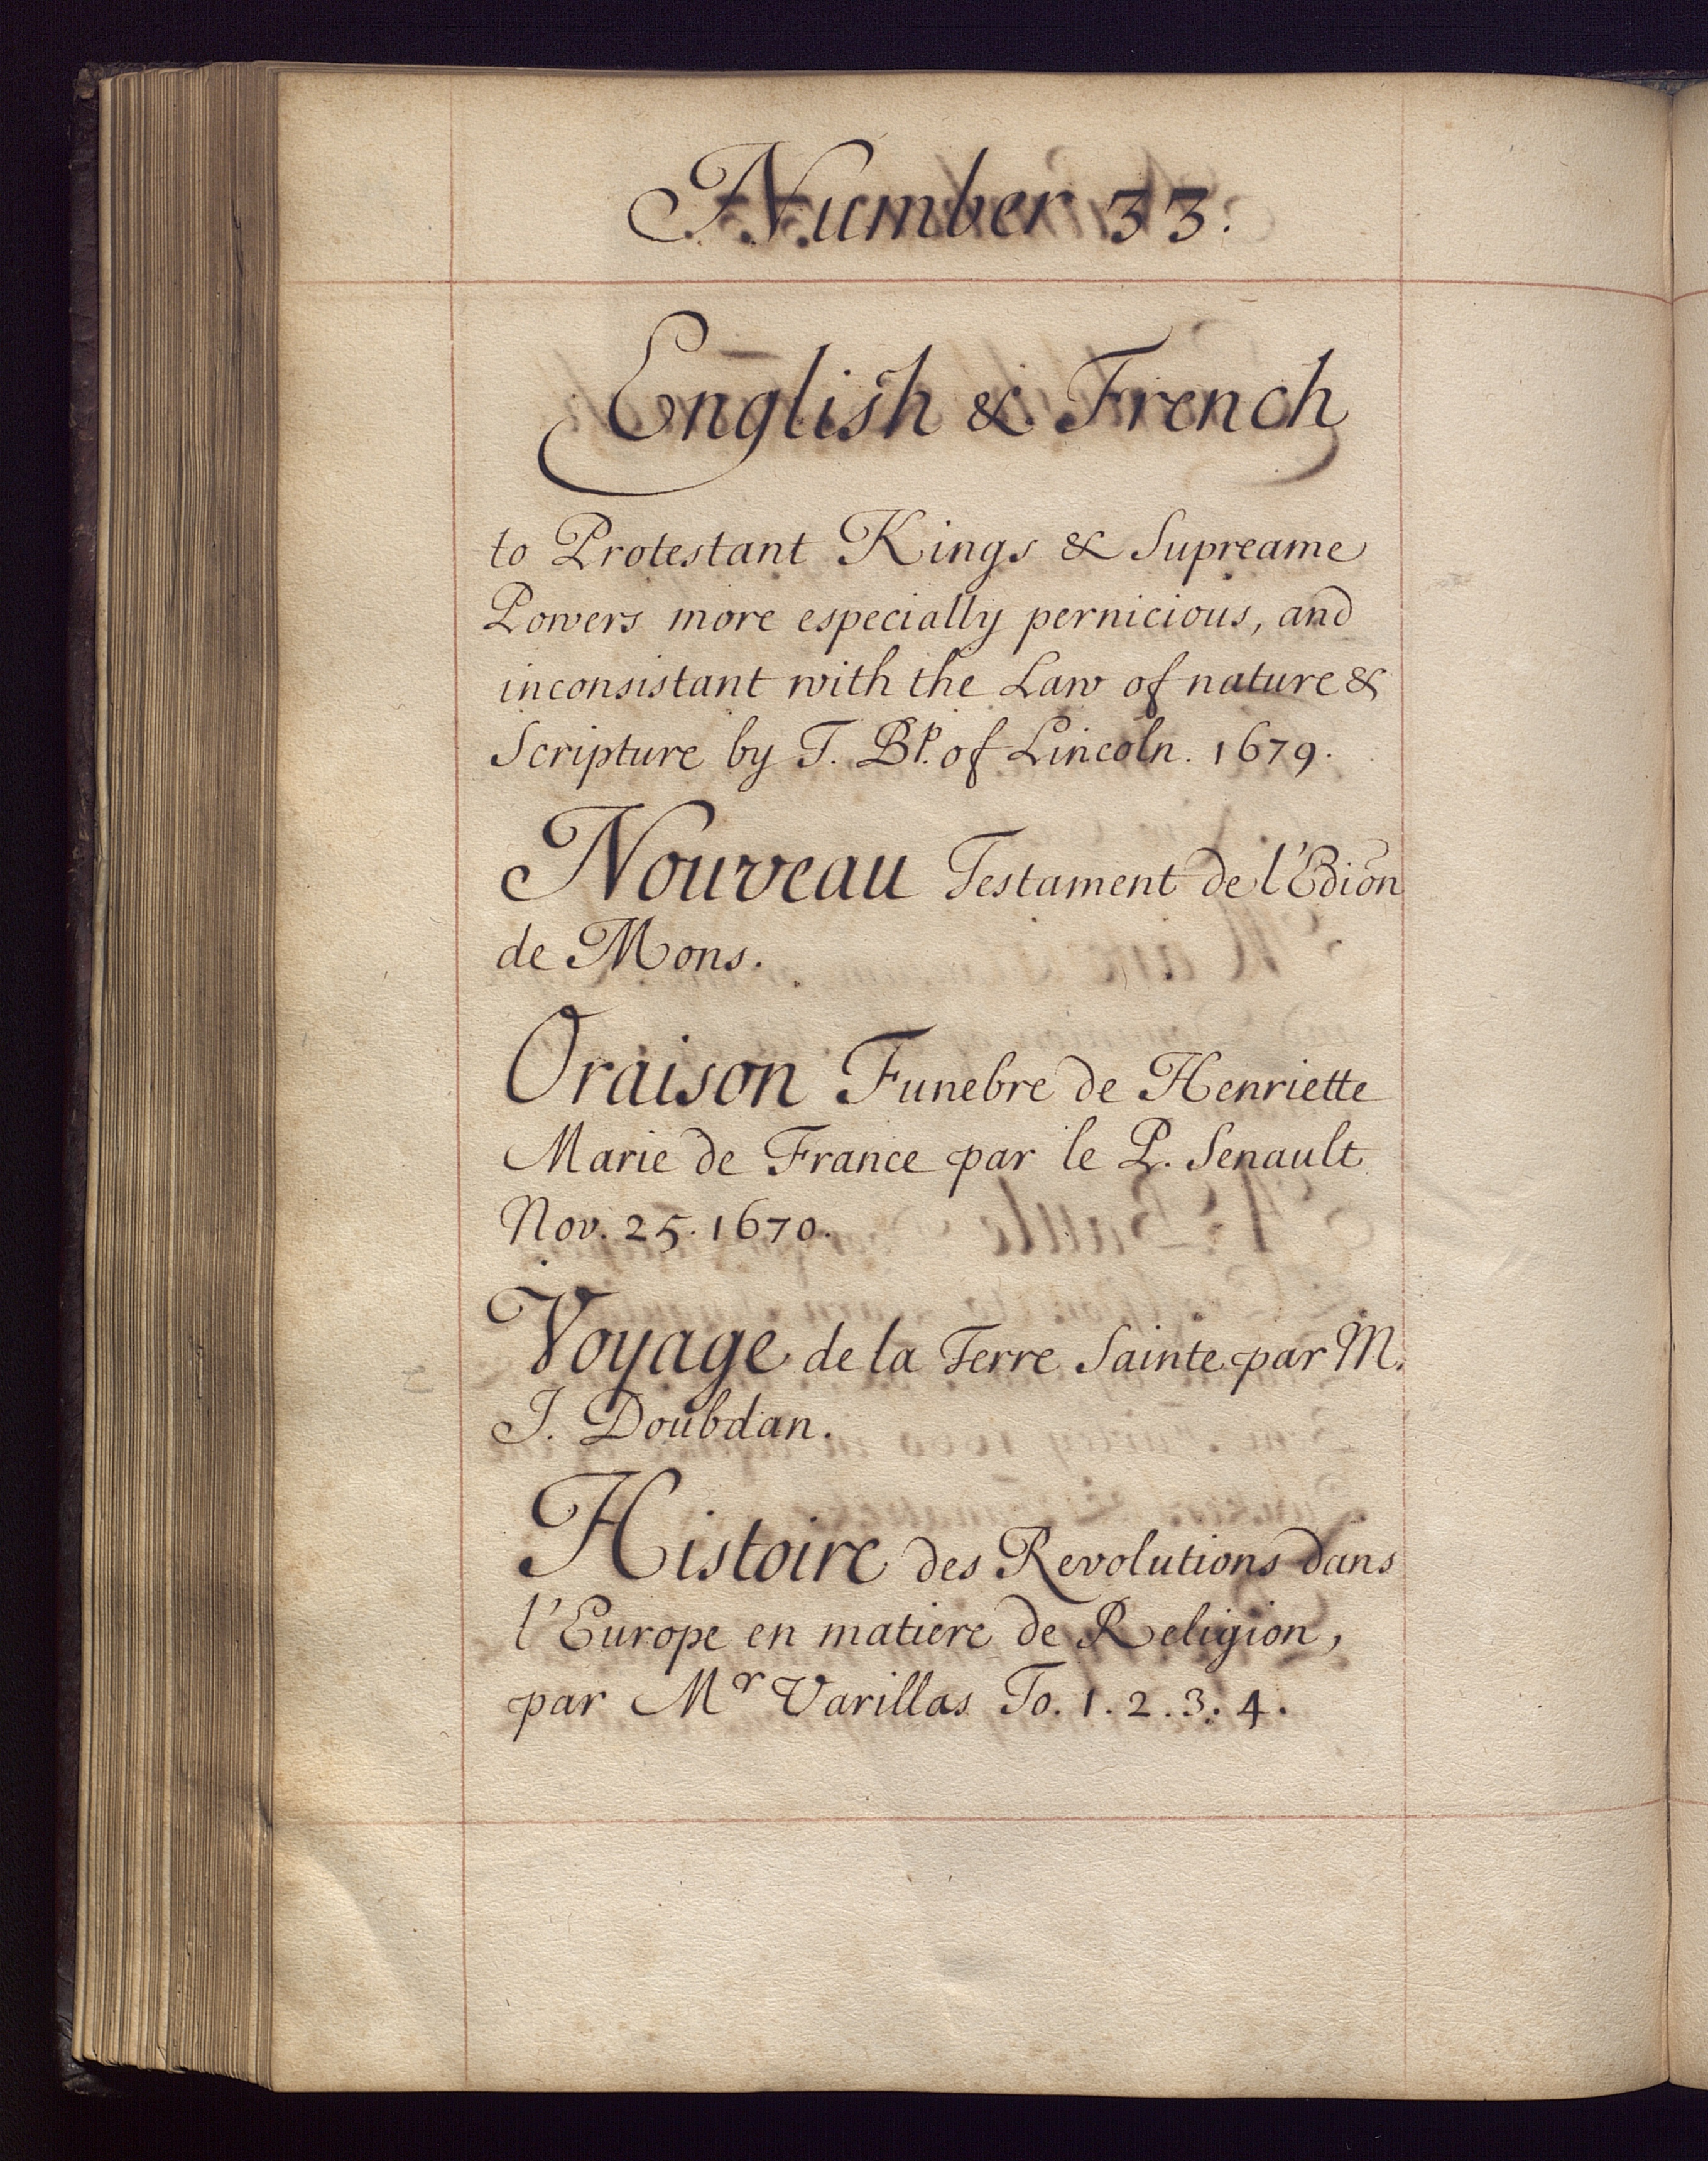 Number 33.
English & French
to Protestant Kings & Supreame
Powers more especially pernicious, and
inconsistant with the Law of nature &
Scripture by T. Bp. of Lincoln. 1679.
Nouveau Testament de l'Edion
de Mons.
Oraison Funebre de Henriette
Marie de France par le P. Senault
Nov. 25. 1670.
Voyage de la Terre Sainte par M.
J. Doubdan.
Histoire des Revolutions dans
l'Europe en matiere de Religion,
par Mr Varillas To. 1. 2. 3. 4.